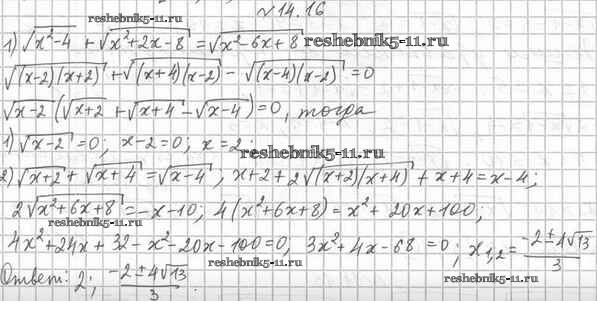 №14.16
reshebnik5-11.ru
1) √(x²-4) + √(x²+2x-8) = √(x²-6x+8) reshebnik5-11.ru
√((x-2)(x+2)) + √((x+4)(x-2)) - √((x-4)(x-2)) = 0
√(x-2) (√(x+2) + √(x+4) - √(x-4)) = 0, тогда
1) √(x-2) = 0; x-2=0; x=2;
reshebnik5-11.ru
2) √(x+2) + √(x+4) = √(x-4); x+2+2√((x+2)(x+4)) + x+4 = x-4;
2√(x²+6x+8) = -x-10; 4(x²+6x+8) = x²+20x+100;
reshebnik5-11.ru
4x²+24x+32-x²-20x-100=0; 3x²+4x-68=0; x₁,₂ = (-2±4√13)/3
reshebnik5-11.ru
Ответ: 2; (-2±4√13)/3.
reshebnik5-11.ru